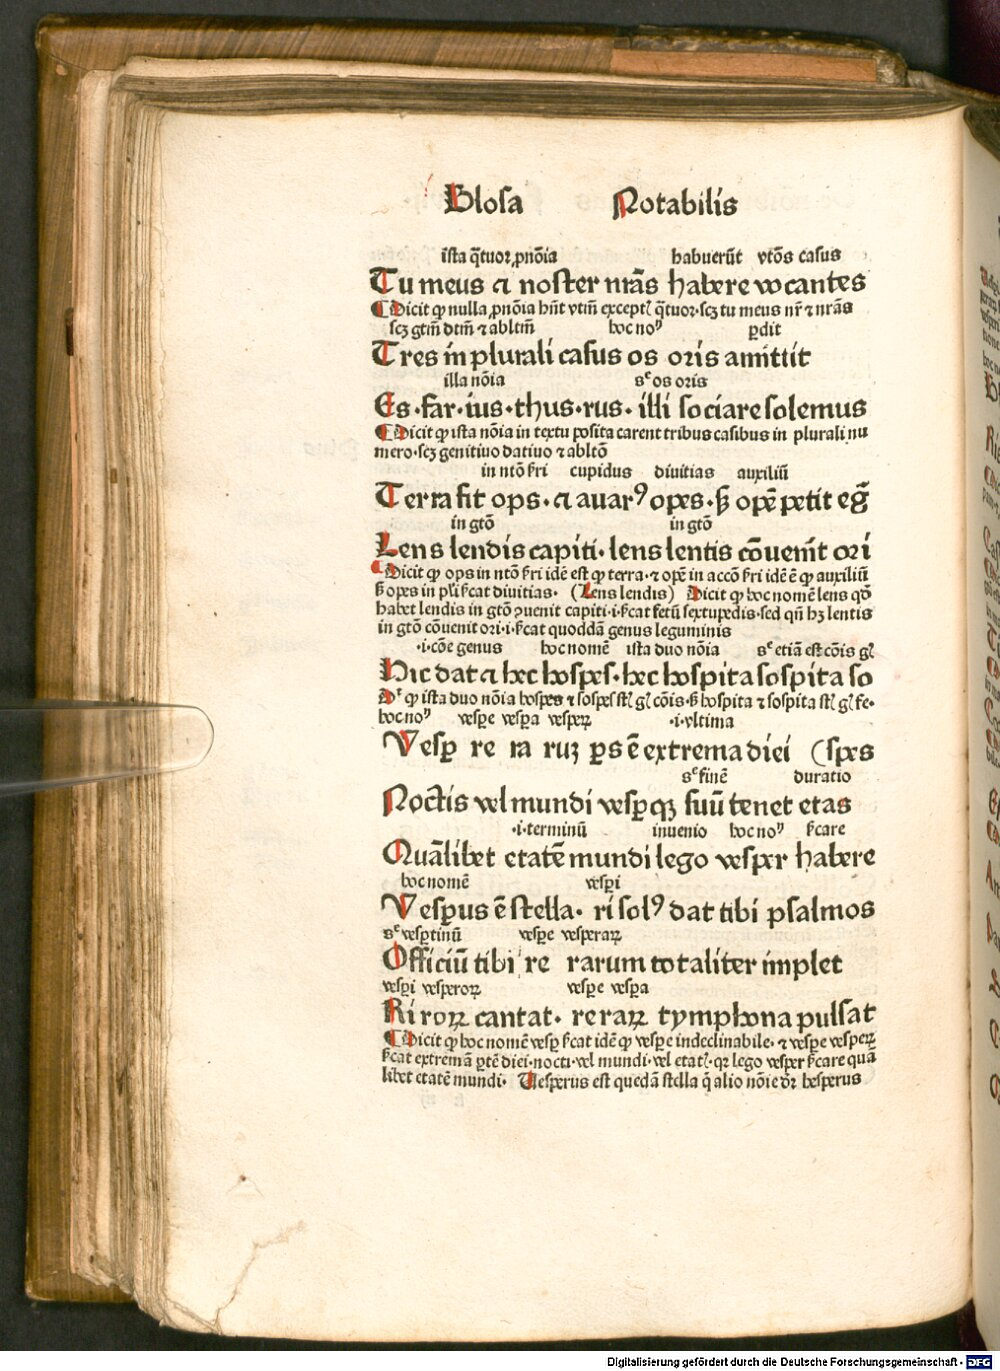 Glosa Notabilis
ista q̃tuor ꝓnoĩa habuerũt vtõs casus
Tu meus ⁊ noster nr̃as habere vocantes
Dicit ꝙ nulla ꝓnoĩa hñt vtm̃ except᷒ q̃tuor·scꝫ tu meus nr̃ ⁊ nr̃as
scꝫ gtm̃ dtm̃ ⁊ abltm̃ hoc noꝰ ꝑdit
Tres in plurali casus os oris amittit
illa noĩa sᶜ os oris
Es·far·ius·thus·rus·illi sociare solemus
Dicit ꝙ ista noĩa in textu posita carent tribus casibus in plurali nu
mero·scꝫ genitiuo datiuo ⁊ abltõ
in ntõ ẜri cupidus diuitias auxiliũ
Terra fit ops·⁊ auarꝰ opes·ẜ opẽ petit eg̃
in gtõ in gtõ
Lens lendis capiti·lens lentis cõuenit ori
Dicit ꝙ ops in ntõ ẜri idẽ est ꝙ terra·⁊ opẽ in accõ ẜri idẽ ẽ ꝙ auxiliũ
ẜ opes in pl̃i ẜcat diuitias· (Lens lendis) Dicit ꝙ hoc nomẽ lens qđ
habet lendis in gtõ ꝯuenit capiti·i·ẜcat fetũ sextupedis·sed qñ hꝫ lentis
in gtõ cõuenit ori·i·ẜcat quoddã genus leguminis
·i·cõe genus hoc nomẽ ista duo noĩa sᶜ etiã est cõis gl̃
Hic dat ⁊ hec hospes·hec hospita sospita so
Dᶜ ꝙ ista duo noĩa hospes ⁊ sospes st̃ gl̃ cõis·ẜ hospita ⁊ sospita st̃ gl̃ fe·
hoc noꝰ vesꝑe vesꝑa vesꝑeꝝ ·i·vltima
Vesꝑ re ra ruꝫ ꝑs ẽ extrema diei (spes
sᶜ finẽ duratio
Noctis vel mundi vesꝑqꝫ suũ tenet etas
·i·terminũ inuenio hoc noꝰ ẜcare
Quãlibet etatẽ mundi lego vesper habere
hoc nomẽ vesꝑi
Vesꝑus ẽ stella· ri solꝰ dat tibi psalmos
sᶜ vesꝑtinũ vesꝑe vesperaꝝ
Officiũ tibi re rarum totaliter implet
vesꝑi vesperoꝝ vesꝑe vesꝑa
Ri roꝝ cantat· re raꝝ tymphona pulsat
Dicit ꝙ hoc nomẽ vesꝑ ẜcat idẽ ꝙ vesꝑe indeclinabile·⁊ vesꝑe vesꝑeꝝ
ẜcat extremã ꝑtẽ diei·nocti·vel mundi·vel etat᷒·qꝛ lego vesper ẜcare quã
libet etatẽ mundi· Uesperus est quedã stella q̃ alio noĩe dr̃ hesperus
Digitalisierung gefördert durch die Deutsche Forschungsgemeinschaft - DFG